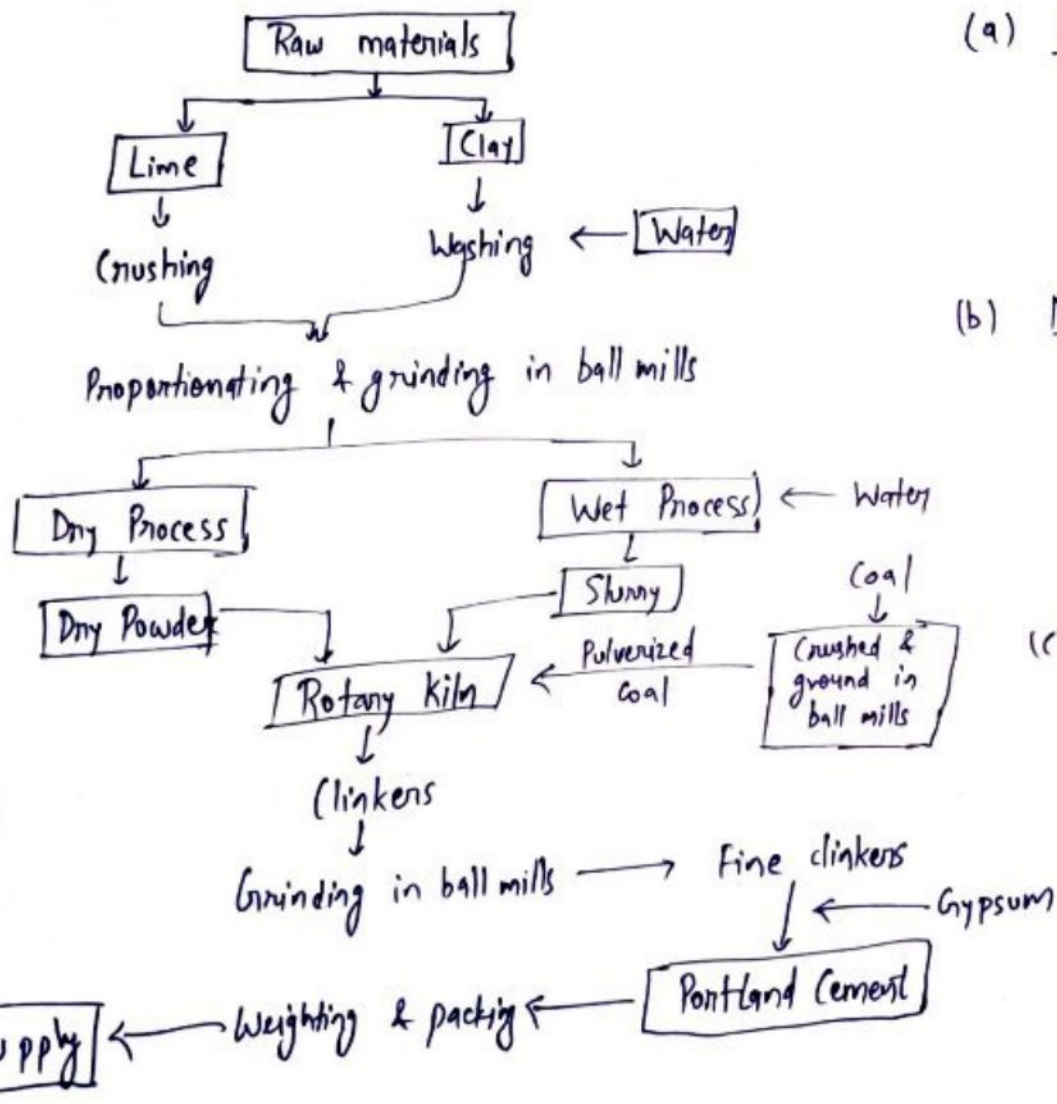 Raw materials
(a)
Lime
Clay
Crushing
Washing
Water
(b)
Proportionating & grinding in ball mills
Dry Process
Wet Process
Water
Dry Powder
Slurry
Coal
Rotary Kiln
Pulverized
Coal
Crushed &
ground in
ball mills
(c
Clinkers
Grinding in ball mills
Fine clinkers
Gypsum
Portland Cement
Weighting & packing
upply